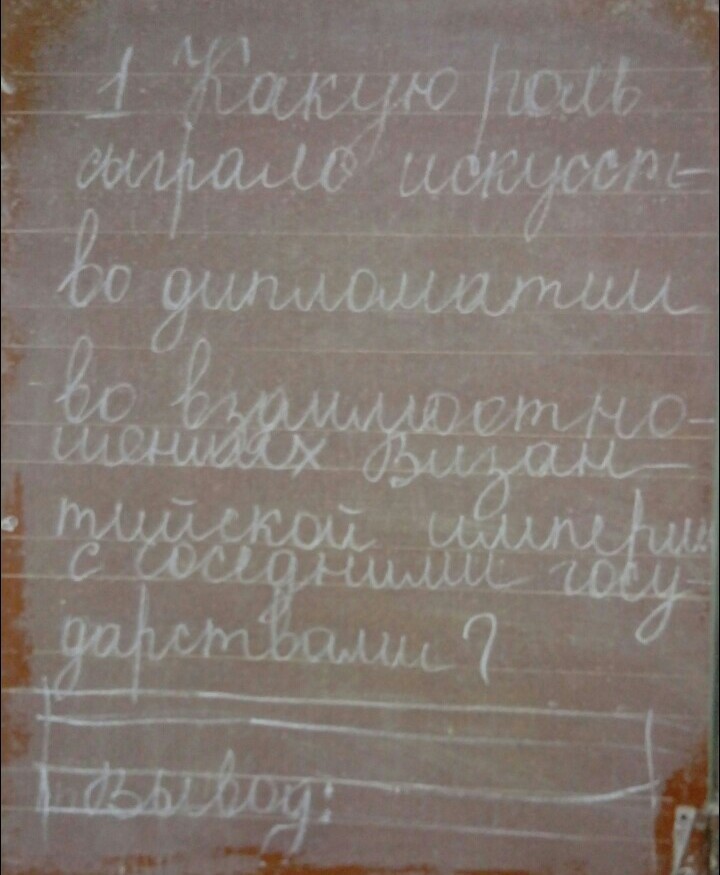 1 Какую роль
сыграло искусст-
во дипломатии
во взаимоотно-
шениях Визан-
тийской империи
с соседними госу-
дарствами?
Вывод: